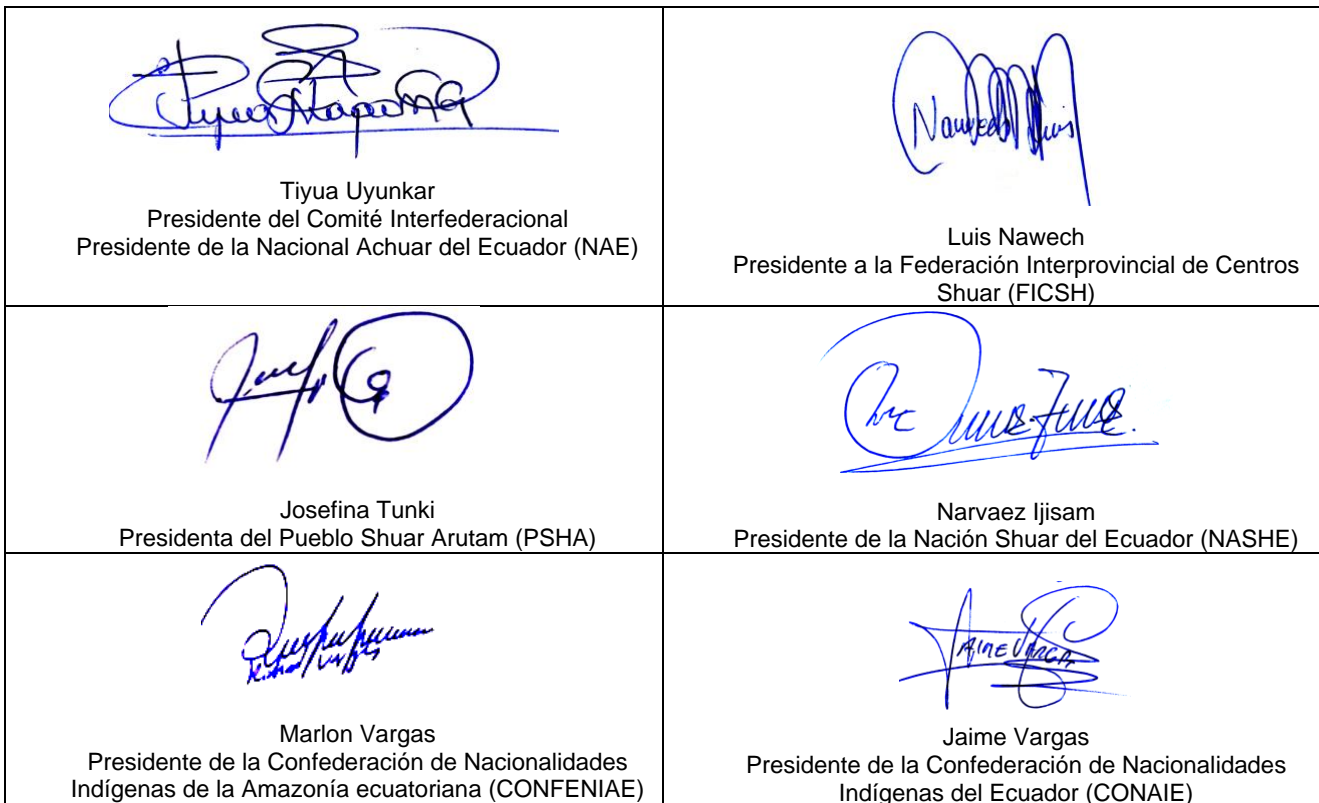 Tiyua Uyunkar
Presidente del Comité Interfederacional
Presidente de la Nacional Achuar del Ecuador (NAE)
Nawech Luis
Luis Nawech
Presidente a la Federación Interprovincial de Centros
Shuar (FICSH)
Josefina Tunki
Presidenta del Pueblo Shuar Arutam (PSHA)
Narvaez Ijisam
Presidente de la Nación Shuar del Ecuador (NASHE)
Marlon Vargas
Presidente de la Confederación de Nacionalidades
Indígenas de la Amazonía ecuatoriana (CONFENIAE)
JAIME VARGAS
Jaime Vargas
Presidente de la Confederación de Nacionalidades
Indígenas del Ecuador (CONAIE)